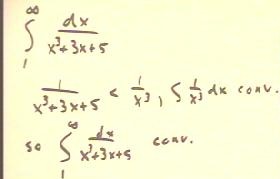 ∞
∫ dx / x³+3x+5
1
1 / x³+3x+5 < 1 / x³ , ∫ 1/x³ dx conv.
so ∫₁^∞ dx / x³+3x+5 conv.